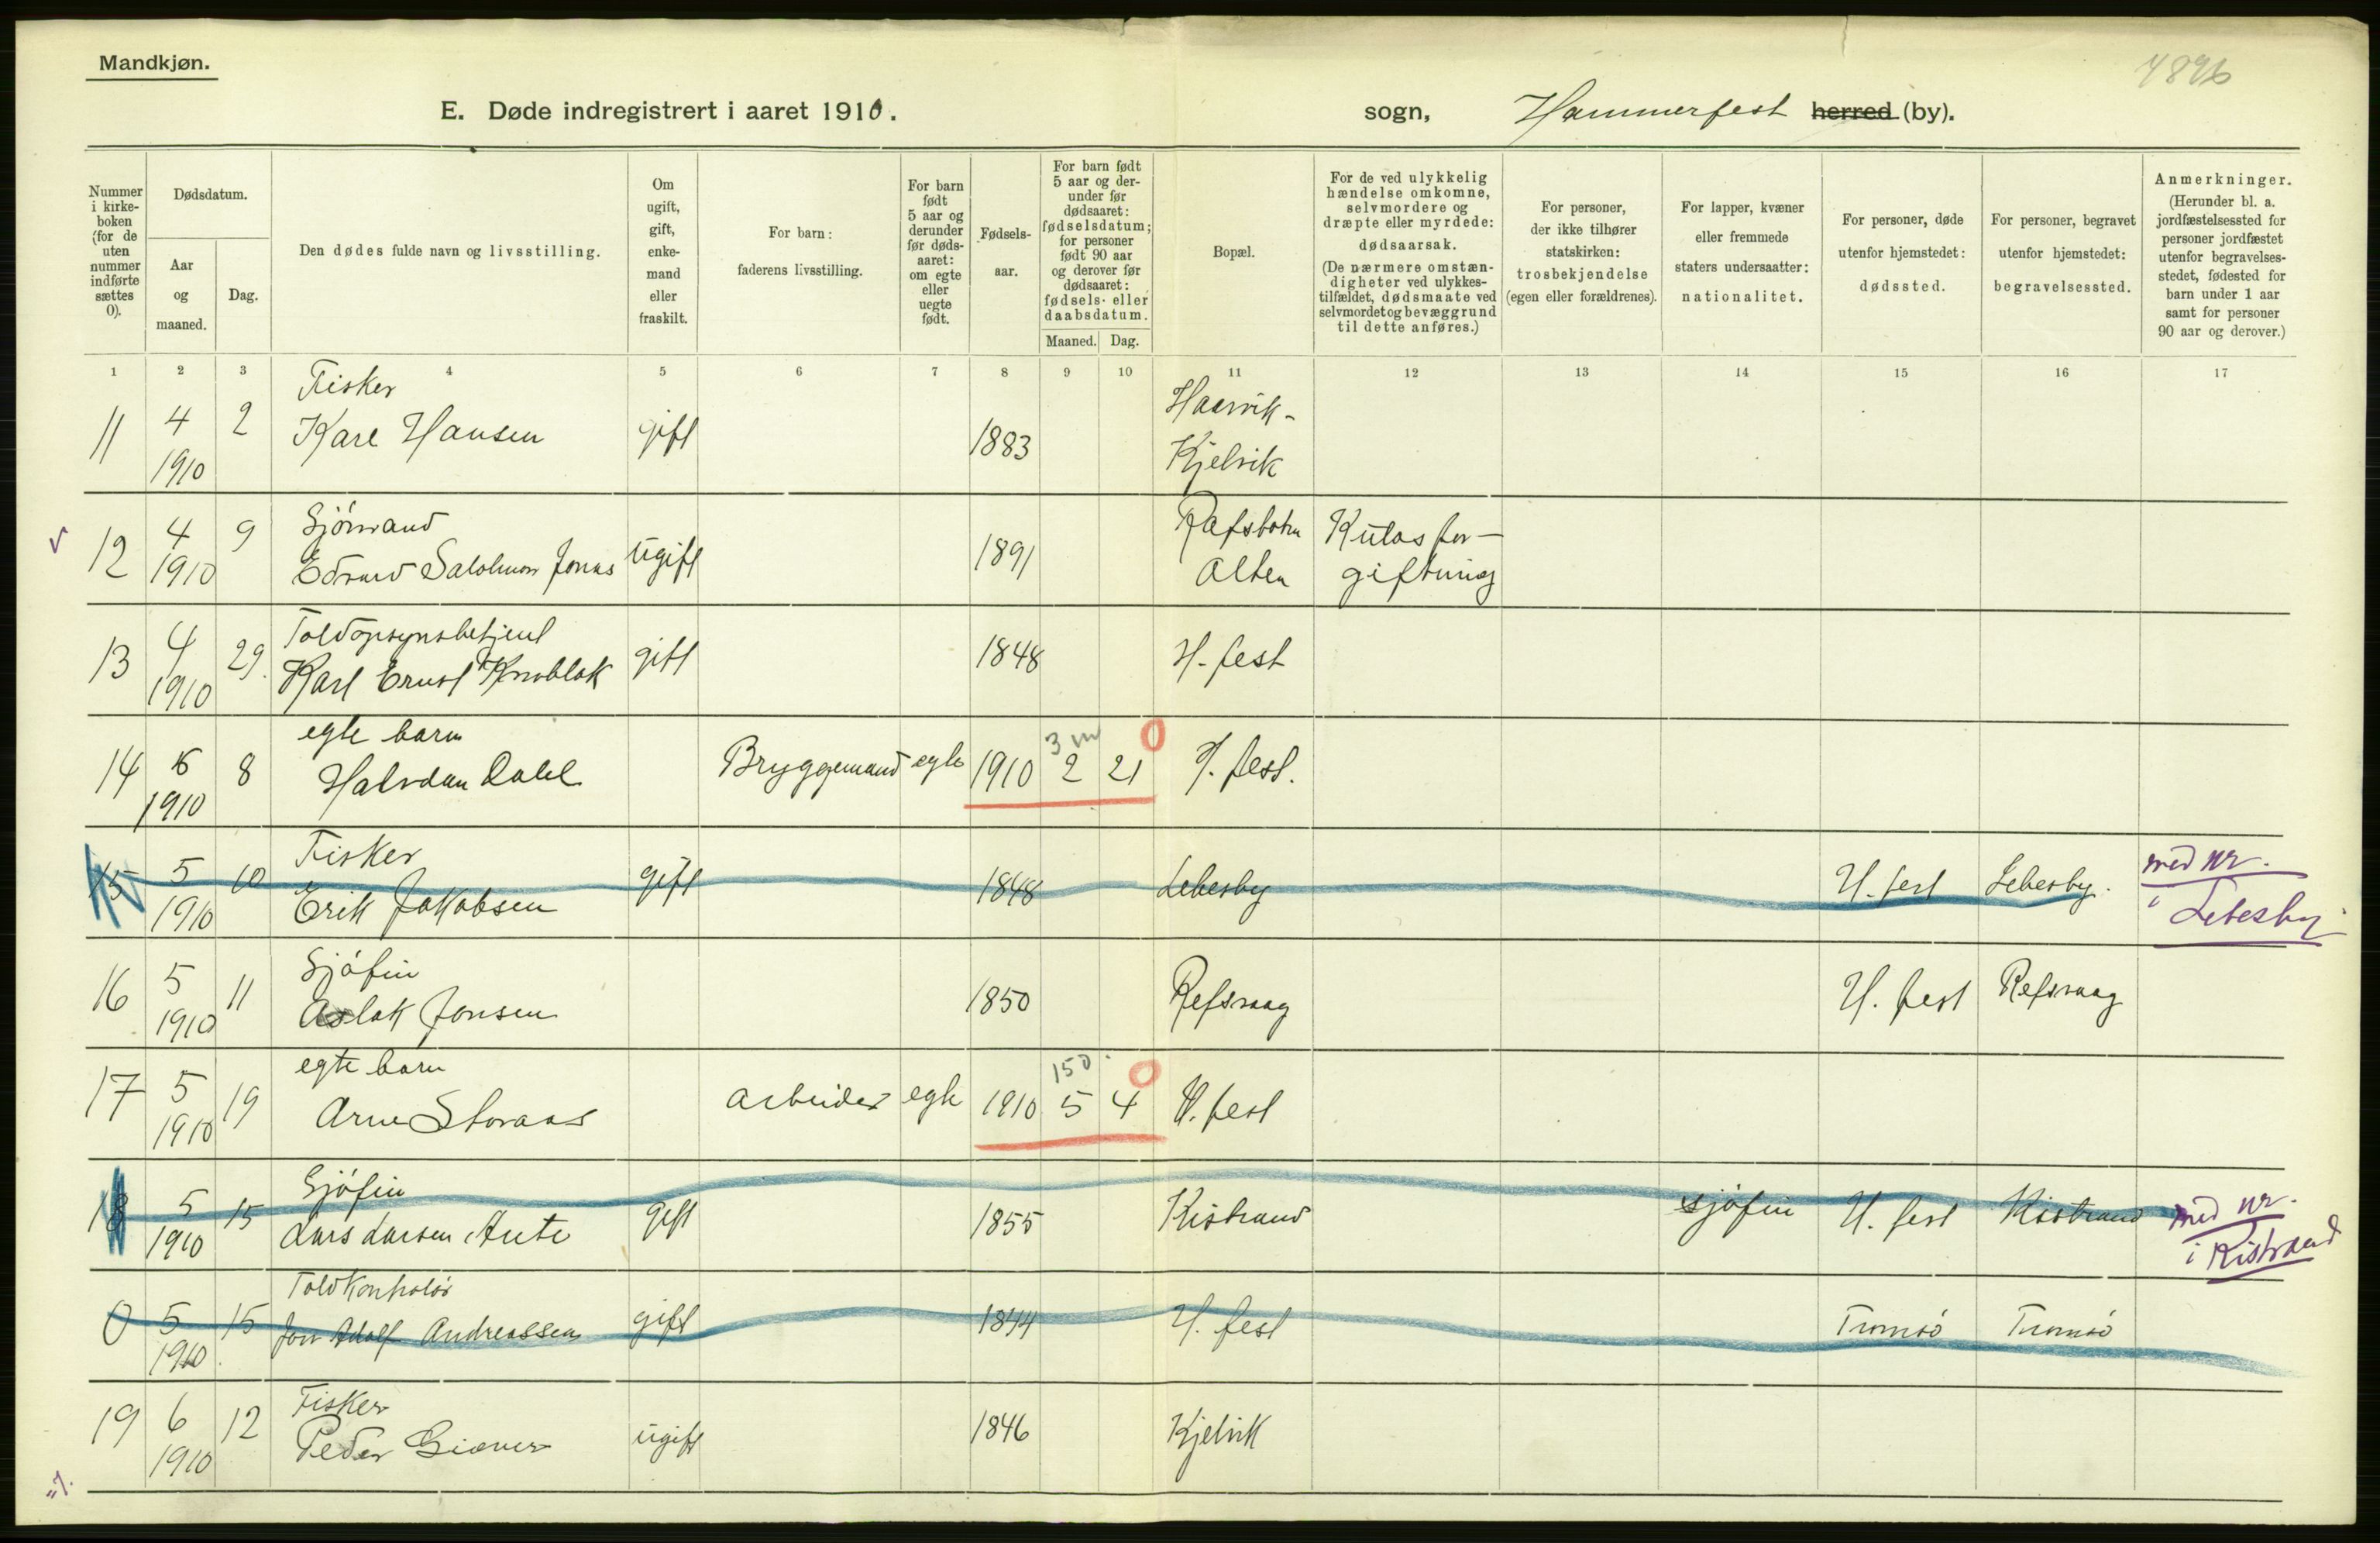 Mandkjøn.
4896
E. Døde indregistrert i aaret 1910.
sogn, Hammerfest herred (by).
Nummer i kirke- boken (for de uten nummer indførte sættes 0).
Dødsdatum.
Aar og maaned.
Dag.
Den dødes fulde navn og livsstilling.
Om ugift, gift, enke- mand eller fraskilt.
For barn: faderens livsstilling.
For barn født 5 aar og derunder før døds- aaret: om egte eller uegte født.
Fødsels- aar.
For barn født 5 aar og der- under før dødsaaret: fødselsdatum; for personer født 90 aar og derover før dødsaaret: fødsels- eller daabsdatum.
Maaned. Dag.
Bopæl.
For de ved ulykkelig hændelse omkomne, selvmordere og dræpte eller myrdede: dødsaarsak. (De nærmere omstæn- digheter ved ulykkes- tilfældet, dødsmaate ved selvmordet og bevæggrund til dette anføres.)
For personer, der ikke tilhører statskirken: trosbekjendelse (egen eller forældrenes).
For lapper, kvæner eller fremmede staters undersaatter: nationalitet.
For personer, døde utenfor hjemstedet: dødssted.
For personer, begravet utenfor hjemstedet: begravelsessted.
Anmerkninger. (Herunder bl. a. jordfæstelsessted for personer jordfæstet utenfor begravelses- stedet, fødested for barn under 1 aar samt for personer 90 aar og derover.)
1 2 3 4 5 6 7 8 9 10 11 12 13 14 15 16 17
Fisker Haavik-
11 4 2 Karl Hansen gift 1883
1910 Kjelvik
Sjömand Rafsbotn Kulosfor-
12 4 9 Edvard Salolmon Jonas Ugift 1891
1910 Alten giftning
Toldopsynsbetjent
13 4 29. Karl Ernst Knoblok gift 1848 H-fest
1910
egte barn 3 m 0
14 6 8 Halvdan Dahl Bryggemand egte 1910 2 21 H. fest.
1910
Fisker med nr.
15 5 10 Erik Jakobsen gift 1848 Lebesby H. fest Lebesby.
1910 i Lebesby
Sjöfin
16 5 11 Aslak Jonsen 1850 Refsvaag H. fest Refsvaag
1910
egte barn 15 D 0
17 5 19 Arne Storaas Arbeider egte 1910 5 4 H. fest
1910
Sjöfin med nr.
18 5 15 Lars Larsen Ante gift 1855 Kistrand sjöfin H. fest Kistrand
1910 i Kistrand
Toldkontrolör
0 5 15 Jon Adolf Andreassen gift 1844 H. fest Tromsö Tromsö
1910
Fisker
19 6 12 Peder Giæver ugift 1846 Kjelvik
1910